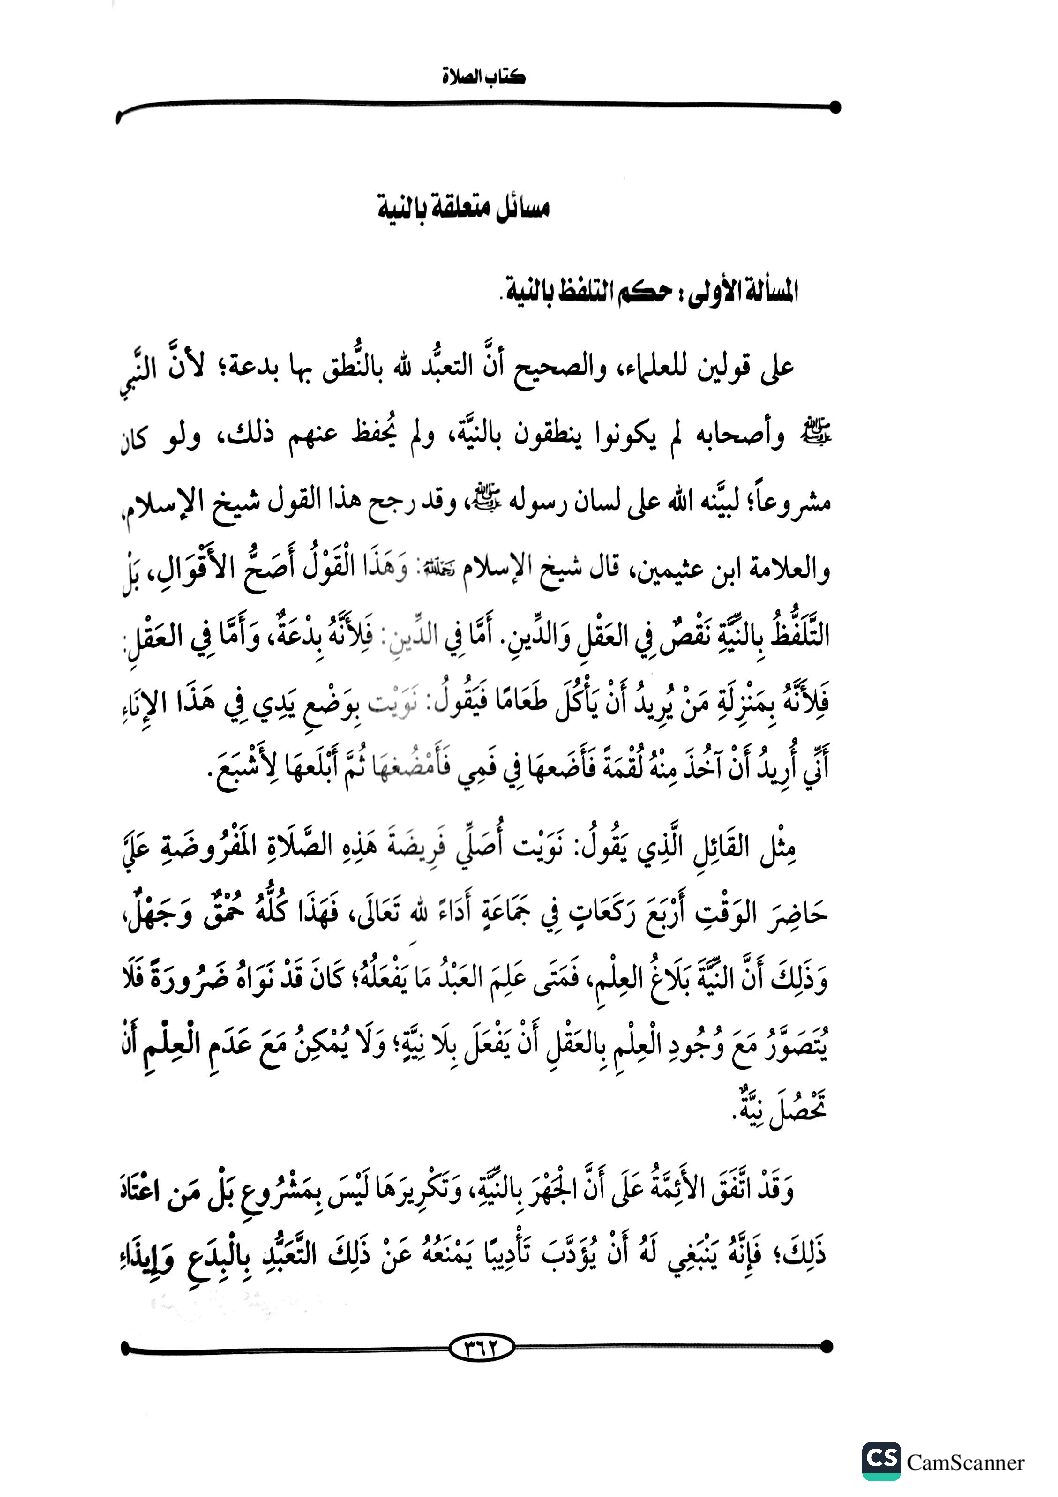 كتاب الصلاة
مسائل متعلقة بالنية
المسألة الأولى: حكم التلفظ بالنية.
على قولين للعلماء، والصحيح أنَّ التعبُّد لله بالنُّطق بها بدعة؛ لأنَّ النَّبي
ﷺ وأصحابه لم يكونوا ينطقون بالنيَّة، ولم يُحفظ عنهم ذلك، ولو كان
مشروعاً؛ لبيَّنه الله على لسان رسوله ﷺ، وقد رجح هذا القول شيخ الإسلام،
والعلامة ابن عثيمين، قال شيخ الإسلام رحمه الله: وَهَذَا الْقَوْلُ أَصَحُّ الأَقْوَالِ، بَلْ
التَّلَفُّظُ بِالنِّيَّةِ نَقْصٌ فِي العَقْلِ وَالدِّينِ. أَمَّا فِي الدِّينِ: فَلِأَنَّهُ بِدْعَةٌ، وَأَمَّا فِي العَقْلِ:
فَلِأَنَّهُ بِمَنْزِلَةِ مَنْ يُرِيدُ أَنْ يَأْكُلَ طَعَامًا فَيَقُولُ: نَوَيْت بِوَضْعِ يَدِي فِي هَذَا الإِنَاءِ
أَنِّي أُرِيدُ أَنْ آخُذَ مِنْهُ لُقْمَةً فَأَضَعهَا فِي فَمِي فَأَمْضُغهَا ثُمَّ أَبْلَعهَا لِأَشْبَعَ.
مِثْل القَائِلِ الَّذِي يَقُولُ: نَوَيْت أُصَلِّي فَرِيضَةَ هَذِهِ الصَّلَاةِ المَفْرُوضَةِ عَلَيَّ
حَاضِرَ الوَقْتِ أَرْبَعَ رَكَعَاتٍ فِي جَمَاعَةٍ أَدَاءً لله تَعَالَى، فَهَذَا كُلُّهُ حُمْقٌ وَجَهْلٌ،
وَذَلِكَ أَنَّ النِّيَّةَ بَلَاغُ العِلْمِ، فَمَتَى عَلِمَ العَبْدُ مَا يَفْعَلُهُ؛ كَانَ قَدْ نَوَاهُ ضَرُورَةً فَلَا
يُتَصَوَّرُ مَعَ وُجُودِ الْعِلْمِ بِالعَقْلِ أَنْ يَفْعَلَ بِلَا نِيَّةٍ؛ وَلَا يُمْكِنُ مَعَ عَدَمِ الْعِلْمِ أَنْ
تَحْصُلَ نِيَّةٌ.
وَقَدْ اتَّفَقَ الأَئِمَّةُ عَلَى أَنَّ الجَهْرَ بِالنِّيَّةِ، وَتَكْرِيرَهَا لَيْسَ بِمَشْرُوعٍ بَلْ مَن اعْتَادَ
ذَلِكَ؛ فَإِنَّهُ يَنْبَغِي لَهُ أَنْ يُؤَدَّبَ تَأْدِيبًا يَمْنَعُهُ عَنْ ذَلِكَ التَّعَبُّدِ بِالْبِدَعِ وَإِيذَاءِ
٣٦٢
CS CamScanner